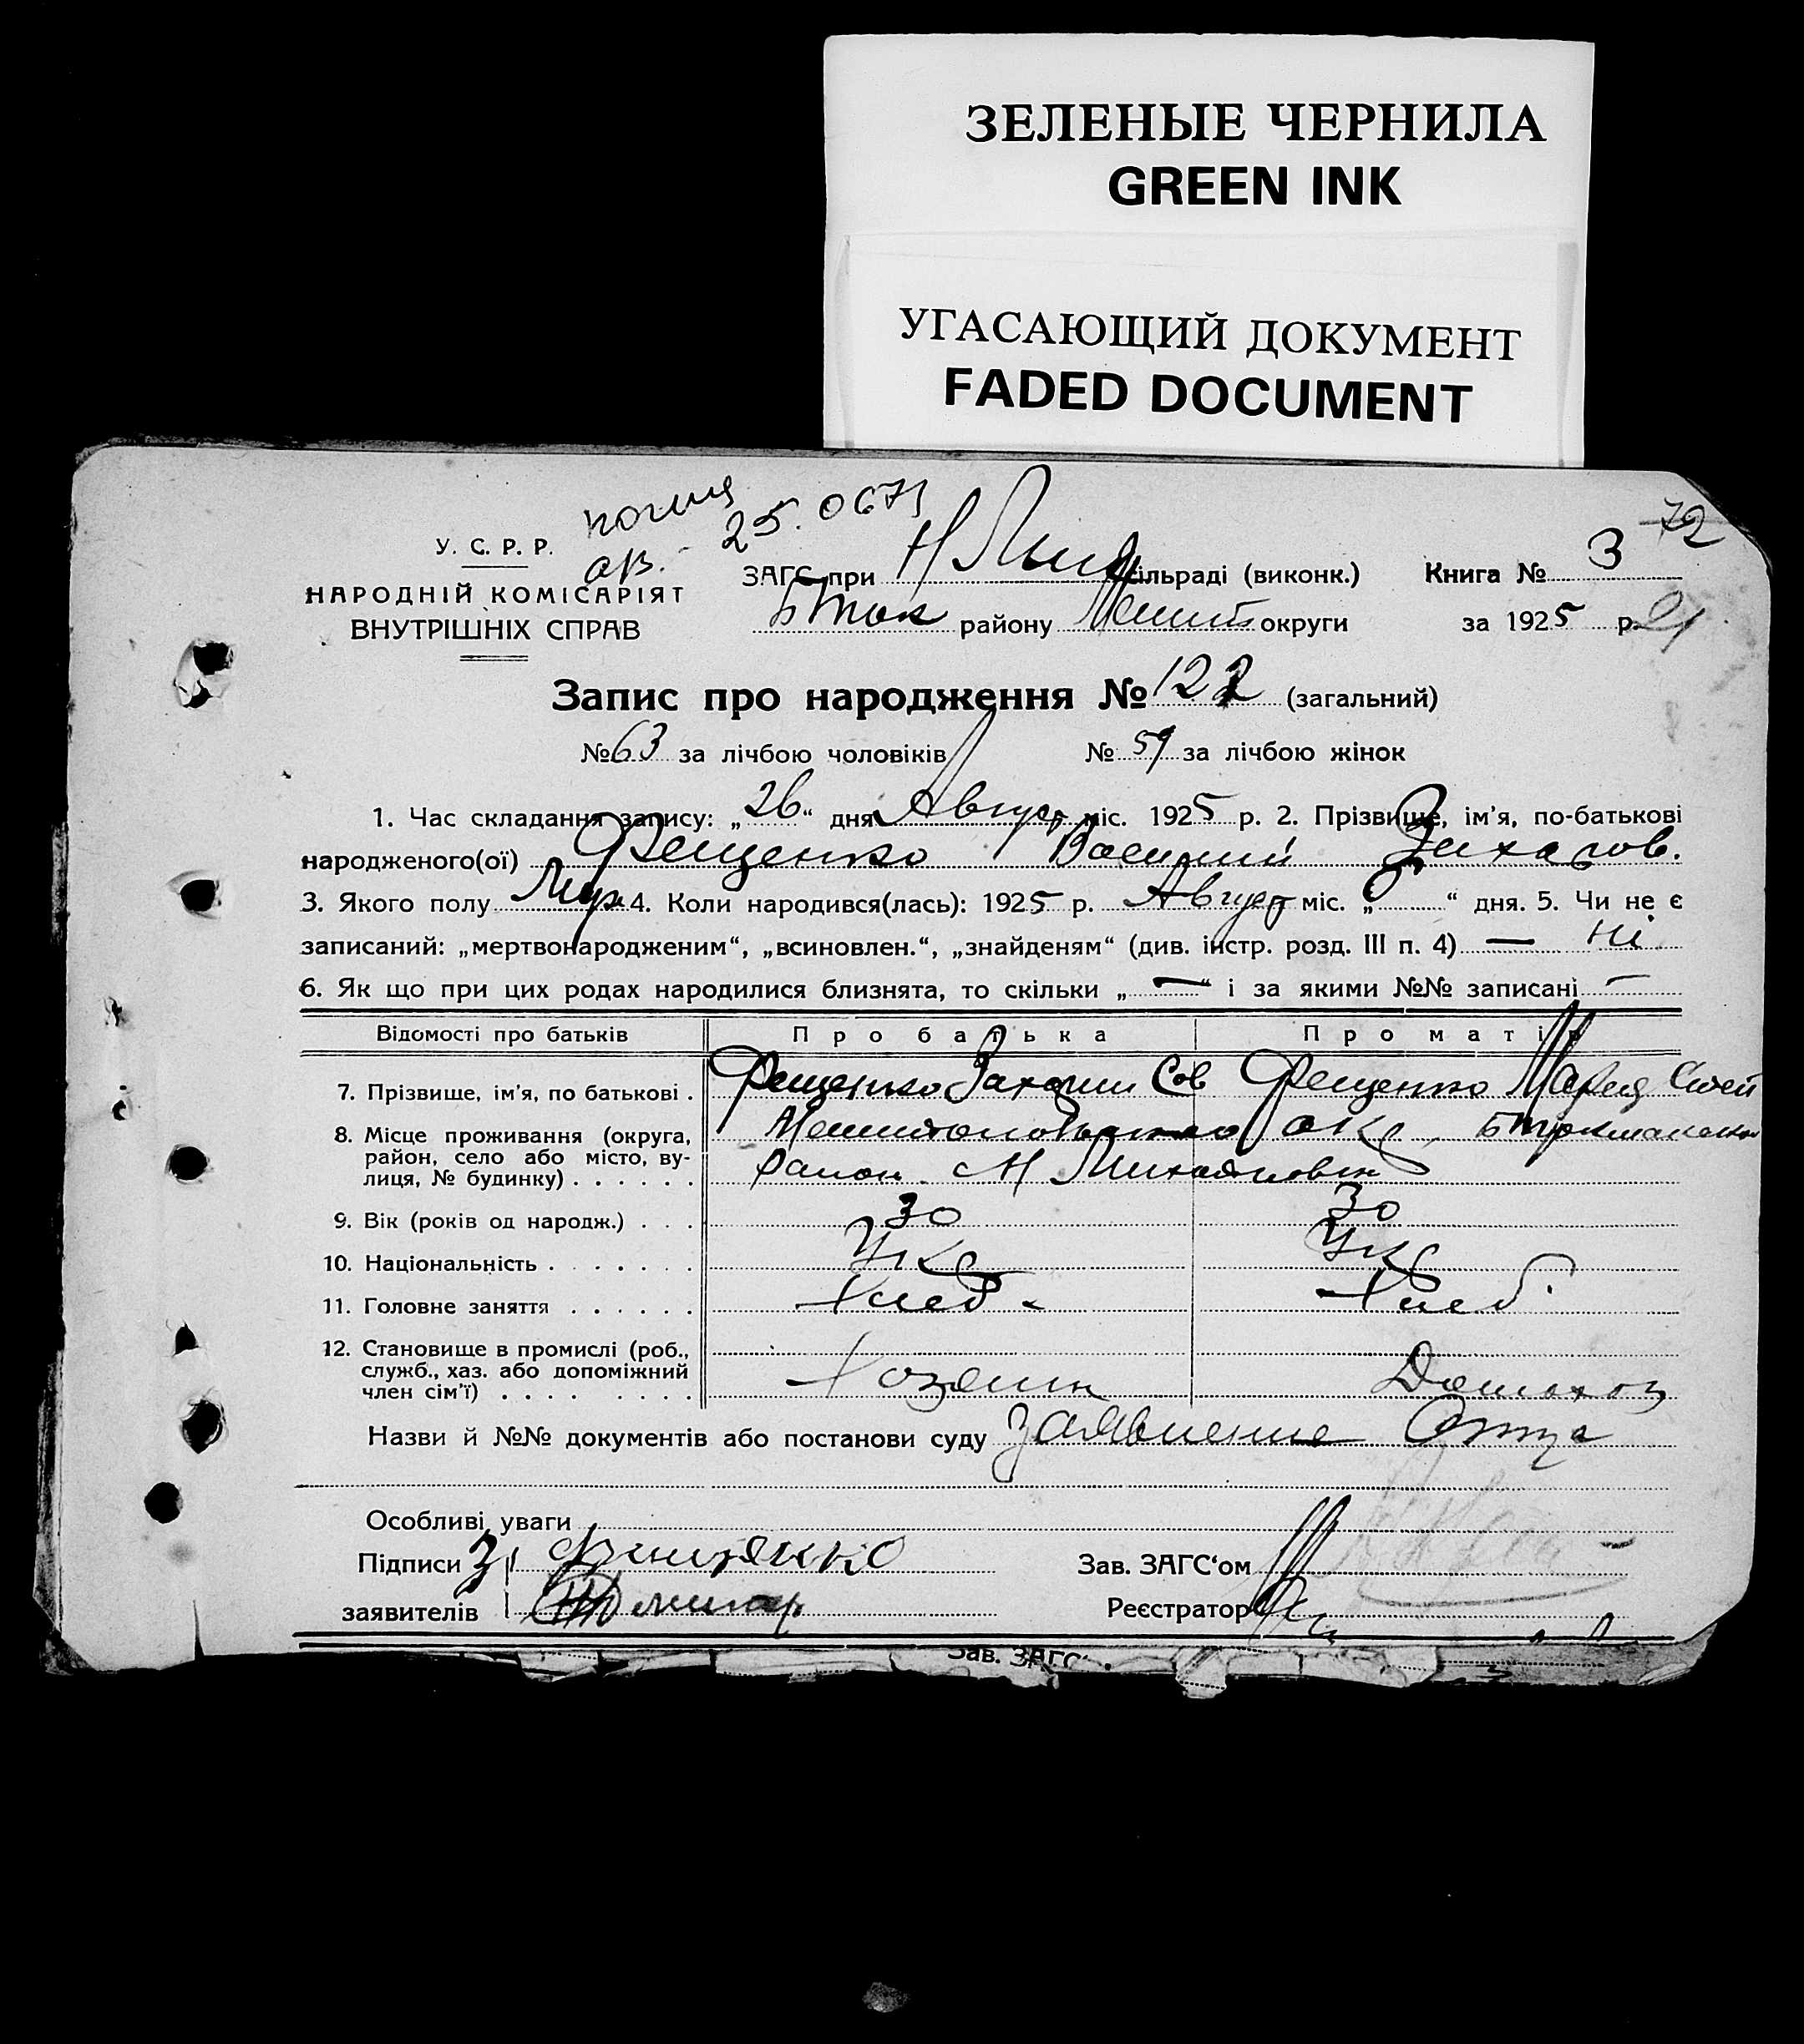 ЗЕЛЕНЫЕ ЧЕРНИЛА
GREEN INK
УГАСАЮЩИЙ ДОКУМЕНТ
FADED DOCUMENT
72
25.
У. С. Р. Р.
НАРОДНІЙ КОМІСАРІЯТ
ВНУТРІШНІХ СПРАВ
ЗАГС при Н сільраді (виконк.) Книга № 3
району округи за 1925 р.
Запис про народження № 122 (загальний)
№ 63 за лічбою чоловіків № 59 за лічбою жінок
1. Час складання запису: „26“ дня Август міс. 1925 р. 2. Прізвище, ім'я, по-батькові
народженого(ої) Фещенко Василий Захаров.
3. Якого полу Муж 4. Коли народився(лась): 1925 р. Август міс. „ “ дня. 5. Чи не є
записаний: „мертвонародженим“, „всиновлен.“, „знайденям“ (див. інстр. розд. III п. 4) — Ні
6. Як що при цих родах народилися близнята, то скільки „—“ і за якими №№ записані —
Відомості про батьків Про батька Про матір
7. Прізвище, ім'я, по батькові . Фещенко Захарий Фещенко Мария
8. Місце проживання (округа, район, село або місто, вулиця, № будинку) . . . . . . Мелитопольского окр,
район. Михайловка
9. Вік (років од народж.) . . . 30 30
10. Національність . . . . . . . Укр Укр
11. Головне заняття . . . . . . Хлеб. Хлеб.
12. Становище в промислі (роб.,
служб., хаз. або допоміжний
член сім'ї) . . . . . . . . Хозяин Домохоз
Назви й №№ документів або постанови суду Заявление Отца
Особливі уваги
Підписи Зав. ЗАГС'ом
заявителів Реєстратор
Зав. ЗАГС'